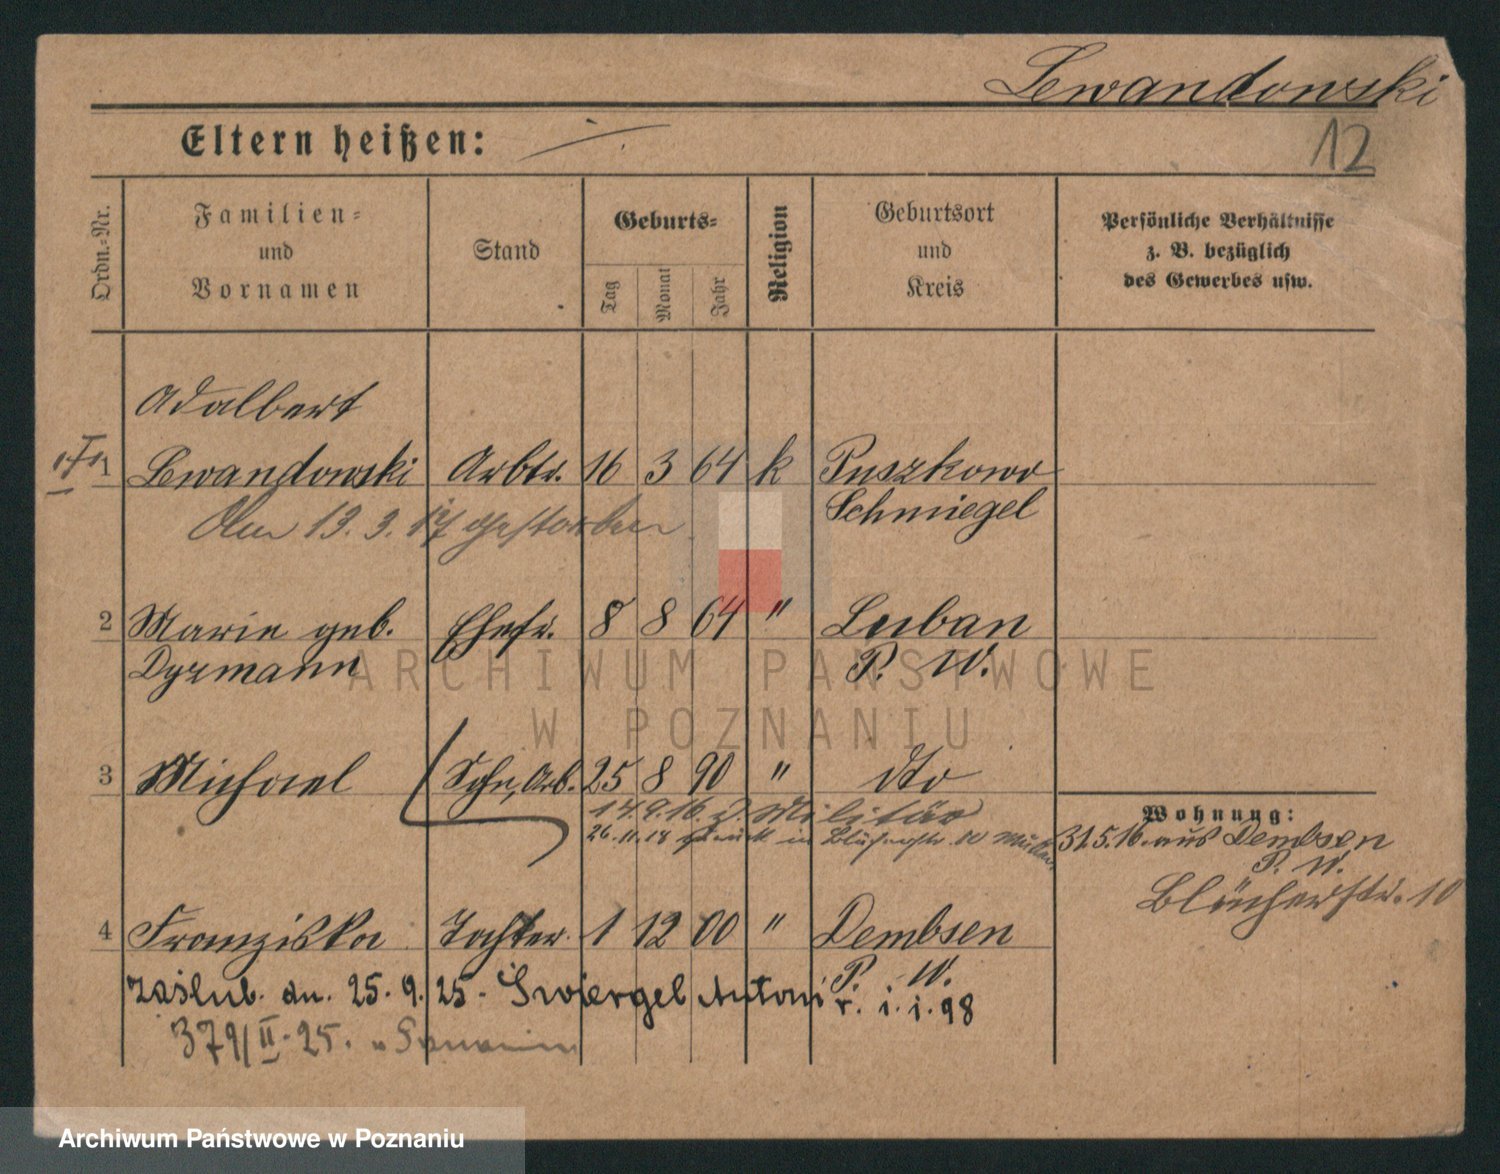 Lewandowski
12
Eltern heißen: —
Ordn.-Nr.
Familien-
und
Vornamen
Stand
Geburts-
Tag
Monat
Jahr
Religion
Geburtsort
und
Kreis
Persönliche Verhältnisse
z. B. bezüglich
des Gewerbes usw.
Adalbert
1 Lewandowski Arbtr. 16 3 64 k Puszkowo
Schmiegel
Am 13. 3. 17 gestorben
2 Marie geb. Ehefr. 8 8 64 " Luban
Dyzmann P. W.
3 Michael Sohn, Arb. 25 8 90 " dto
14.9.16 z. Militär
26.11.18 zurück in Blücherstr. 10
Wohnung:
31.5.16. aus Dembsen
P. W.
Blücherstr. 10
4 Franziska Tochter 1 12 00 " Dembsen
P. W.
zaślub. dn. 25. 9. 25 - Świergel Antoni r. i. i. 98
379/II. 25.
ARCHIWUM PAŃSTWOWE
W POZNANIU
Archiwum Państwowe w Poznaniu